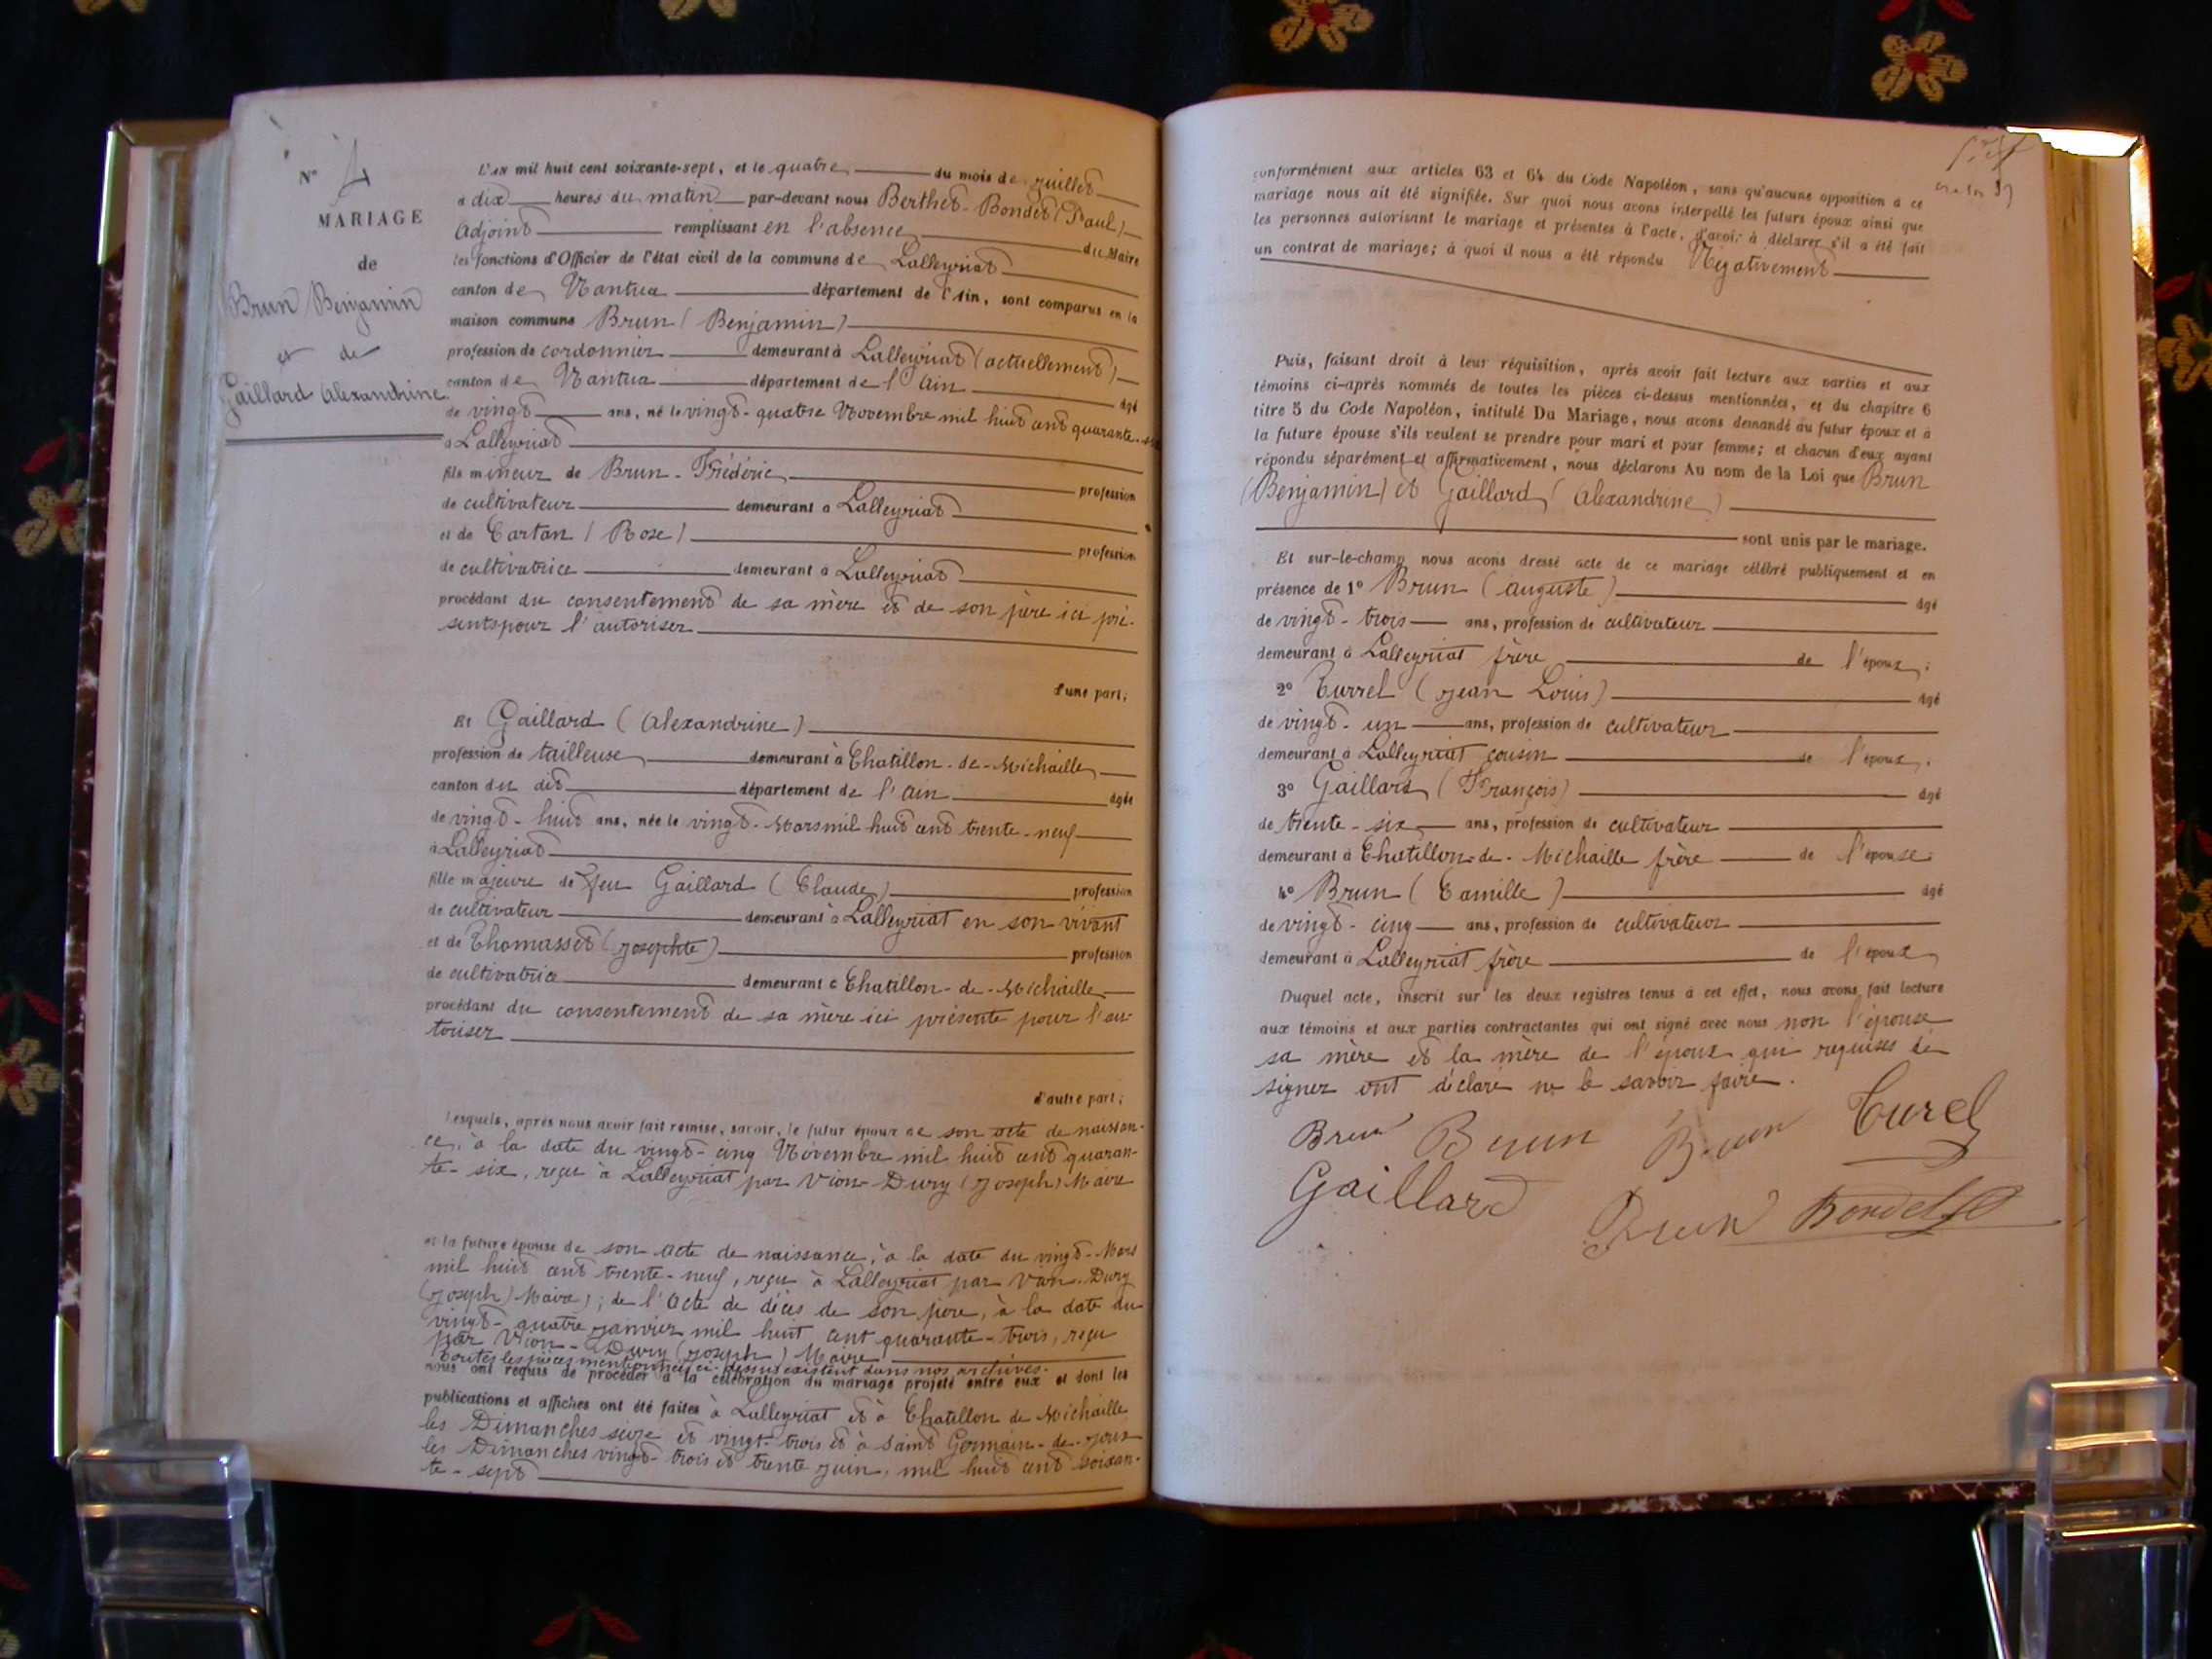 N° 4
MARIAGE
de
Brun Benjamin
et de
Gaillard Alexandrine
L'AN mil huit cent soixante-sept, et le quatre du mois de juillet
à dix heures du matin par-devant nous Berthet-Bondet (Paul)
Adjoint remplissant en l'absence du Maire
les fonctions d'Officier de l'état civil de la commune de Lalleyriat
canton de Nantua département de l'Ain, sont comparus en la
maison commune Brun (Benjamin)
profession de cordonnier demeurant à Lalleyriat (actuellement)
canton de Nantua département de l'Ain âgé
de vingt ans, né le vingt-quatre Novembre mil huit cent quarante-six
à Lalleyriat
fils mineur de Brun-Frédéric profession
de cultivateur demeurant à Lalleyriat
et de Cartan (Rose) profession
de cultivatrice demeurant à Lalleyriat
procédant du consentement de sa mère et de son père ici pré-
sents pour l'autoriser
d'une part;
Et Gaillard (Alexandrine)
profession de tailleuse demeurant à Chatillon-de-Michaille
canton du dit département de l'Ain âgée
de vingt-huit ans, née le vingt-Mars mil huit cent trente-neuf
à Lalleyriat
fille majeure de feu Gaillard (Claude) profession
de cultivateur demeurant à Lalleyriat en son vivant
et de Thomasset (Josephte) profession
de cultivatrice demeurant à Chatillon-de-Michaille
procédant du consentement de sa mère ici présente pour l'au-
toriser
d'autre part;
Lesquels, après nous avoir fait remise, savoir, le futur époux de son acte de naissan-
ce, à la date du vingt-cinq Novembre mil huit cent quaran-
te-six, reçu à Lalleyriat par Vion-Dury (Joseph) Maire
et la future épouse de son acte de naissance, à la date du vingt-Mars
mil huit cent trente-neuf, reçu à Lalleyriat par Vion-Dury
(Joseph) Maire; de l'acte de décès de son père, à la date du
vingt-quatre janvier mil huit cent quarante-trois, reçu
par Vion-Dury (Joseph) Maire
toutes les pièces mentionnées ci-dessus existent dans nos archives.
nous ont requis de procéder à la célébration du mariage projeté entre eux et dont les
publications et affiches ont été faites à Lalleyriat et à Chatillon de Michaille
les Dimanches seize et vingt-trois et à Saint Germain-de-Joux
les Dimanches vingt-trois et trente juin, mil huit cent soixan-
te-sept
conformément aux articles 63 et 64 du Code Napoléon, sans qu'aucune opposition à ce
mariage nous ait été signifiée. Sur quoi nous avons interpellé les futurs époux ainsi que
les personnes autorisant le mariage et présentes à l'acte, d'avoir à déclarer s'il a été fait
un contrat de mariage; à quoi il nous a été répondu Négativement
Puis, faisant droit à leur réquisition, après avoir fait lecture aux parties et aux
témoins ci-après nommés de toutes les pièces ci-dessus mentionnées, et du chapitre 6
titre 5 du Code Napoléon, intitulé Du Mariage, nous avons demandé au futur époux et à
la future épouse s'ils veulent se prendre pour mari et pour femme; et chacun d'eux ayant
répondu séparément et affirmativement, nous déclarons Au nom de la Loi que Brun
(Benjamin) et Gaillard (Alexandrine)
sont unis par le mariage.
Et sur-le-champ nous avons dressé acte de ce mariage célébré publiquement et en
présence de 1° Brun (Auguste) âgé
de vingt-trois ans, profession de cultivateur
demeurant à Lalleyriat frère de l'époux;
2° Turrel (Jean Louis) âgé
de vingt-un ans, profession de cultivateur
demeurant à Lalleyriat cousin de l'époux;
3° Gaillard (François) âgé
de trente-six ans, profession de cultivateur
demeurant à Chatillon-de-Michaille frère de l'épouse
4° Brun (Camille) âgé
de vingt-cinq ans, profession de cultivateur
demeurant à Lalleyriat frère de l'époux
Duquel acte, inscrit sur les deux registres tenus à cet effet, nous avons fait lecture
aux témoins et aux parties contractantes qui ont signé avec nous non l'épouse
sa mère et la mère de l'époux qui requises de
signer ont déclaré ne le savoir faire.
Brun Brun Brun Turel
Gaillard Brun Bondet